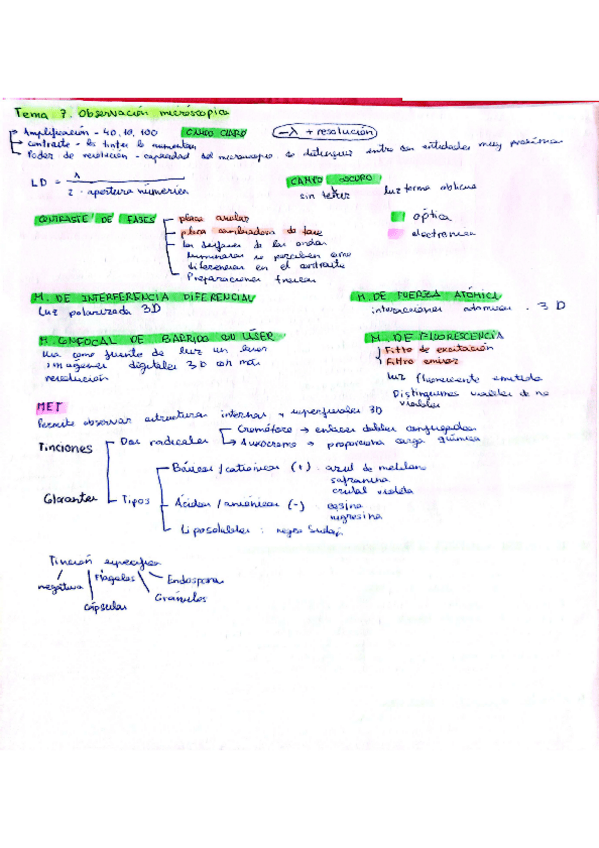 Tema 7. Observación microscópica
Amplificación - 40, 10, 100 CAMPO CLARO -λ + resolución
contraste - los tintes lo aumentan
Poder de resolución - capacidad del microscopio de distinguir entre dos entidades muy próximas
LD = λ / 2 · apertura númerica
CAMPO OSCURO
sin teñir luz forma oblicua
CONTRASTE DE FASES
placa anular
placa cambiadora de fase
Los desfases de las ondas
luminosas se perciben como
diferencias en el contraste
Preparaciones frescas
óptica
electrónica
M. DE INTERFERENCIA DIFERENCIAL
Luz polarizada 3D
M. DE FUERZA ATÓMICA
interacciones atómicas . 3D
M. CONFOCAL DE BARRIDO CON LÁSER
Usa como fuente de luz un láser
imágenes digitales 3D con más
resolución
M. DE FLUORESCENCIA
Filtro de excitación
Filtro emisor
luz fluorescente emitida
Distinguimos viables de no
viables
MET
Permite observar estructuras internas y superficiales 3D
Tinciones
Dos radicales
Cromóforo → enlaces dobles conjugados
Auxocromo → proporciona carga química
Colorantes
Tipos
Básicos / catiónicos (+) azul de metileno
safranina
cristal violeta
Ácidos / aniónicos (-) eosina
nigrosina
Liposolubles : negro Sudán
Tinción específica
negativa
Flagelos
Endosporas
cápsulas
Gránulos